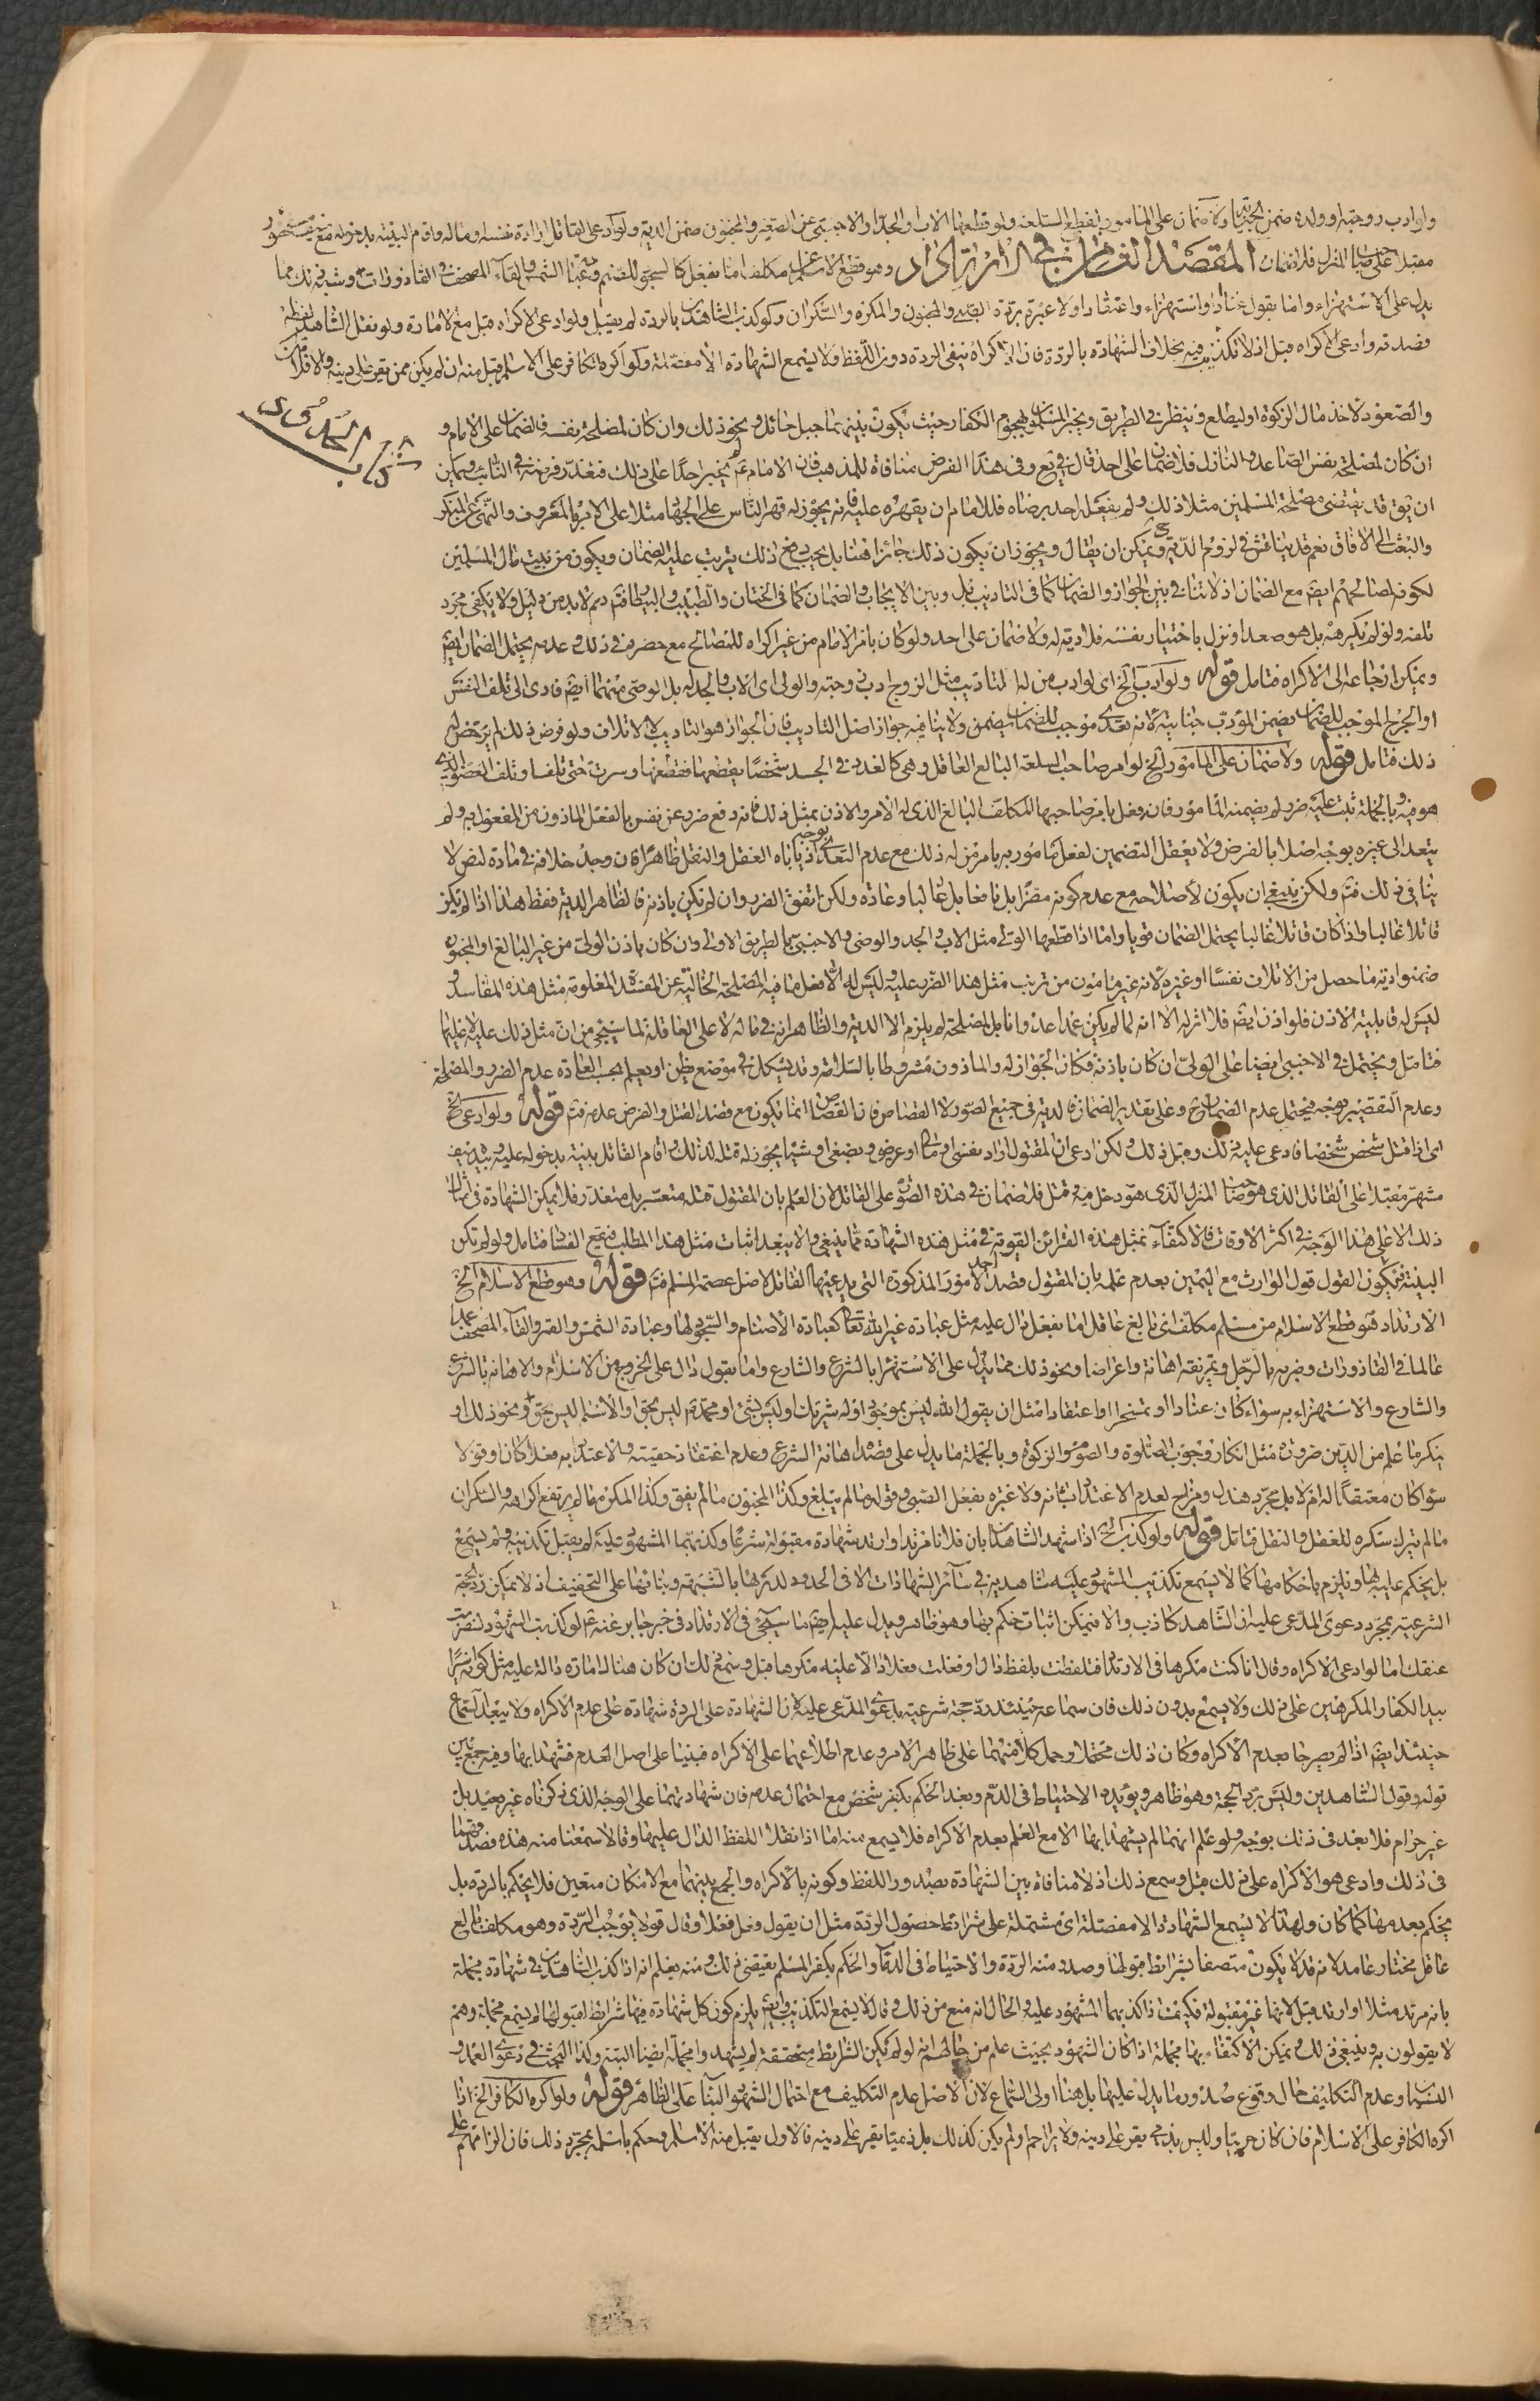 ولو ادب زوجته او ولده ضمن الجناية ولا ضمان على المامور بقطع السلعة ولو قطعها الاب والجد او الاجنبي عن الصغير والمجنون ضمن الدية ولو ادعى القاتل ارادة نفسه او ماله واقام البينة بدخوله مع سيف مشهور
مقبلا على صاحب المنزل فلا ضمان المقصد الثامن في الارتداد وهو قطع الاسلام من مكلف اما بفعل كالسجود للصنم وعبادة الشمس والقاء المصحف في القاذورات وشبه ذلك مما
يدل على الاستهزاء واما بقول عنادا او استهزاء او اعتقادا ولا عبرة بردة الصبي والمجنون والمكره والسكران ولو كذب الشاهدين بالردة لم يقبل ولو ادعى الاكراه قبل مع الامارة ولو نقل الشاهدان لفظه
فصدق وادعى الاكراه قبل اذ لا تكذيب فيه بخلاف الشهادة بالردة فان الاكراه ينفي الردة دون اللفظ ولا يسمع الشهادة الا مفصلة ولو اكره الكافر على الاسلام قبل منه ان لم يكن ممن يقر على دينه والا فلا
والصعود لاخذ مال الزكوة او ليطلع وينظر في الطريق ويخبر المسلمين بهجوم الكفار حيث يكون بينهما جبل حائل ونحو ذلك وان كان لمصلحة نفسه فالضمان على الامام و
ان كان لمصلحة نفس الصاعد والنازل فلا ضمان على احد قال في يع وفي هذا الفرض منافاة للمذهب فان الامام ع لم يجبر احدا على ذلك فتعذر فرضه في النائب ويمكن
ان يق قد يقتضي مصلحة المسلمين مثلا ذلك ولم يفعل احد برضاه فللامام ان يقهره عليه فانه يجوز له قهر الناس على الجهاد مثلا على الامر بالمعروف والنهي عن المنكر
والبعث الى الافاق نعم قد يناقش في لزوم الدية ويمكن ان يقال ويجوز ان يكون ذلك جائزا هنا بل يجب ومع ذلك يترتب عليه الضمان ويكون من بيت مال المسلمين
لكونه لمصالحهم ايضا مع الضمان اذ لا تنافي بين الجواز والضمان كما في التاديب بل وبين الايجاب والضمان كما في الختان والطبيب والبيطار فتم نعم لا بد من دليل ولا يكفي مجرد
تلفه ولو لم يكرهه بل هو صعد او نزل باختيار نفسه فلا دية له ولا ضمان على احد ولو كان بامر الامام من غير اكراه للمصالح مع حصره في ذلك وعدمه يحتمل الضمان ايضا
ويمكن ارجاعه الى الاكراه فتامل قوله ولو ادب الخ اي لو ادب من له التاديب مثل الزوج ادب زوجته والولي اي الاب والجد له بل الوصي منهما ايضا فادى الى تلف النفس
او الجرح الموجب للضمان يضمن المؤدب جنايته لانه تعدى موجب للضمان يضمن ولا ينافيه جواز اصل التاديب فان الجواز هو التاديب لا الاتلاف ولو فرض ذلك لم يرخص له
ذلك فتامل قوله ولا ضمان على المامور الخ لو امر صاحب السلعة البالغ العاقل وهي كالغدد في الجسد شخصا بقطعها فقطعها وسرت حتى تلف او تلف العضو الذي
هو فيه وبالجملة ثبت عليه ضرر لم يضمنه المامور فان فعل بامر صاحبها المكلف البالغ الذي له الامر والاذن بمثل ذلك فانه دفع ضرر عن نفس بالفعل الماذون من المفعول به ولم
يتعد الى غيره بوجه اصلا بالفرض ولا يعقل التضمين لفعل مامور به بامر من له ذلك مع عدم التعدي بوجه اذ ياباه العقل والنقل ظاهرا فان وجد خلافه في مادة لنص لا
ينافي ذلك فتم ولكن ينبغي ان يكون لاصلاحه مع عدم كونه مضرا بل نافعا بل غالبا وعادة ولكن اتفق الضرر وان لم يكن باذنه فالظاهر الدية فقط هذا اذا لم يكن
قاتلا غالبا واذا كان قاتلا غالبا يحتمل الضمان قويا واما اذا قطعها الولي مثل الاب والجد والوصي والاجنبي بالطريق الاولى وان كان باذن الولي من غير البالغ او المجنون
ضمنوا دية ما حصل من الاتلاف نفسا او غيره لانه غير مامون من ترتب مثل هذا الضرر عليه وليس له الا فعل ما فيه المصلحة الخالية عن المفسدة المعلومة مثل هذه المفاسد و
ليس له قابلية الاذن فلو اذن ايضا فلا اثر له الا انه لما لم يكن عمدا عدوانا بل لمصلحة لم يلزم الا الدية والظاهر انه في ماله لا على العاقلة لما سيجيء من ان مثل ذلك عليه لا عليها
فتامل ويحتمل في الاجنبي ايضا على الولي ان كان باذنه فكان الجواز له والماذون مشروطا بالسلامة وقد يشكل في موضع يظن او يعلم بحسب العادة عدم الضرر والمصلحة
وعدم التقصير بوجه فيحتمل عدم الضمان ح وعلى تقدير الضمان فالدية في جميع الصور لا القصاص فان القصاص انما يكون مع قصد القتل والفرض عدمه فتم قوله ولو ادعى الخ
اي اذا قتل شخص شخصا فادعى عليه ذلك وقبل ذلك ولكن ادعى ان المقتول اراد نفسي او مالي او عرضي وبضعي او شيئا يجوز له قتله لذلك واقام القاتل بينة بدخوله عليه وبيده سيف
مشهر مقبلا على القاتل الذي هو صاحب المنزل الذي هو دخل فيه وقتل فلا ضمان في هذه الصورة على القاتل لان العلم بان المقتول قتله متعسر بل متعذر فلا يمكن الشهادة في مثل
ذلك الا على هذا الوجه في اكثر الاوقات فالاكتفاء بمثل هذه القرائن القوية في مثل هذه الشهادة مما ينبغي والا يبعد اثبات مثل هذا المطلب فيقع الفساد فتامل ولو لم تكن
البينة فيكون القول قول الوارث مع اليمين بعدم علمه بان المقتول قصد احد الامور المذكورة التي يدعيها القاتل لاصل عصمة المسلم فتم قوله وهو قطع الاسلام الخ
الارتداد هو قطع الاسلام من مسلم مكلف اي بالغ عاقل اما بفعل دال عليه مثل عبادة غير الله تعالى كعبادة الاصنام والسجود لها وعبادة الشمس والقمر والقاء المصحف عمدا
عالما في القاذورات وضربه بالرجل وتمزيقه اهانة واعراضا ونحو ذلك مما يدل على الاستهزاء بالشرع والشارع واما بقول دال على الخروج من الاسلام والاهانة بالشرع
والشارع والاستهزاء به سواء كان عنادا او تمسخرا او اعتقادا مثل ان يقول الله ليس بموجود او له شريك او ليس بشيء او محمد ص ليس بحق او الاسلام ليس بحق ونحو ذلك او
ينكر ما علم من الدين ضرورة مثل انكار وجوب الصلوة والصوم والزكوة وبالجملة ما يدل على قصد اهانة الشرع وعدم اعتقاد حقيته والاعتداد به فعلا كان او قولا
سواء كان معتقدا له ام لا بل مجرد هذل ومزاح لعدم الاعتداد بشانه ولا عبرة بفعل الصبي وقوله ما لم يبلغ وكذا المجنون ما لم يفق وكذا المكره ما لم يرتفع اكراهه والسكران
ما لم يترك سكره للعقل والنقل فتامل قوله ولو كذب الخ اذا شهد الشاهدان بان فلانا مرتد او ارتد شهادة مقبولة شرعا وكذبهما المشهود عليه لم يقبل تكذيبه ولم يسمع
بل يحكم عليه بها ويلزم باحكامها كما لا يسمع تكذيب المشهود عليه شاهديه في سائر الشهادات الا في الحدود لدرءها بالشبهة وبنائها على التخفيف اذ لا يمكن رد الحجة
الشرعية بمجرد دعوى المدعى عليه ان الشاهد كاذب والا فيمكن اثبات حكم بهما وهو ظاهر ويدل عليه ايضا ما سيجيء في الارتداد في خبر جابر عنه ع لو كذبت الشهود لضربت
عنقك اما لو ادعى الاكراه وقال انا كنت مكرها في الارتداد فتلفظت بلفظ دال او فعلت فعلا دالا عليه مكرها قبل وسمع ذلك ان كان هناك امارة دالة عليه مثل كونه اسيرا
بيد الكفار المكرهين على ذلك ولا يسمع بدون ذلك فان سماعه حينئذ رد حجة شرعية بدعوى المدعى عليه لان الشهادة على الردة شهادة على عدم الاكراه ولا يبعد السماع
حينئذ ايضا اذا لم يصرحا بعدم الاكراه وكان ذلك محتملا وحمل كلامهما على ظاهر الامر وعدم اطلاعهما على الاكراه فبنيا على اصل العدم فشهدا بها وفيه جمع بين
قوله وقول الشاهدين وليس برد الحجة وهو ظاهر ويؤيده الاحتياط في الدم وبعد الحكم بكفر شخص مع احتمال عدمه فان شهادتهما على الوجه الذي ذكرناه غير بعيد بل
غير حرام فلا بعد في ذلك بوجه ولو علم انهما لم يشهدا بها الا مع العلم بعدم الاكراه فلا يسمع منه اما اذا نقلا اللفظ الدال عليهما وقالا سمعنا منه هذه فصدقهما
في ذلك وادعى هو الاكراه على ذلك قبل وسمع ذلك اذ لا منافاة بين الشهادة بصدور اللفظ وكونه بالاكراه والجمع بينهما مع الامكان متعين فلا يحكم بالردة بل
يحكم بعدمها كما كان ولهذا لا يسمع الشهادة الا مفصلة اي مشتملة على شرائط حصول الردة مثل ان يقول وفعل فعلا وقال قولا يوجب الردة وهو مكلف بالغ
عاقل مختار عامد لانه قد لا يكون متصفا بشرائط قبولها وصدور منه الردة والاحتياط في الدماء والحكم بكفر المسلم يقتضي ذلك ومنه يعلم انه اذا كذب الشاهدين في شهادة مجملة
بانه مرتد مثلا او ارتد قبل لانها غير مقبولة فكيف اذا كذبهما المشهود عليه والحال انه منع من ذلك وقال لا يسمع التكذيب وايضا يلزم كون كل شهادة فيها شرائط لقبولها لم يسمع مجملة وهم
لا يقولون به وينبغي ذلك ويمكن الاكتفاء بها مجملة اذا كان الشهود بحيث علم من حالهم انه لو لم يكن الشرائط متحققة لم يشهدوا مجملة ايضا البتة وكذا البحث في دعوى العمد و
النسيان وعدم التكليف حال وقوع صدور ما يدل عليها بل هنا اولى السماع لان الاصل عدم التكليف مع احتمال الشهود البناء على الظاهر قوله ولو اكره الكافر الخ اذا
اكره الكافر على الاسلام فان كان حربيا وليس بذمي يقر على دينه ولا يزاحم ولم يكن كذلك بل ذميا يقر على دينه فالاول يقبل منه الاسلام وحكم باسلامه بمجرد ذلك فان الزامهم على